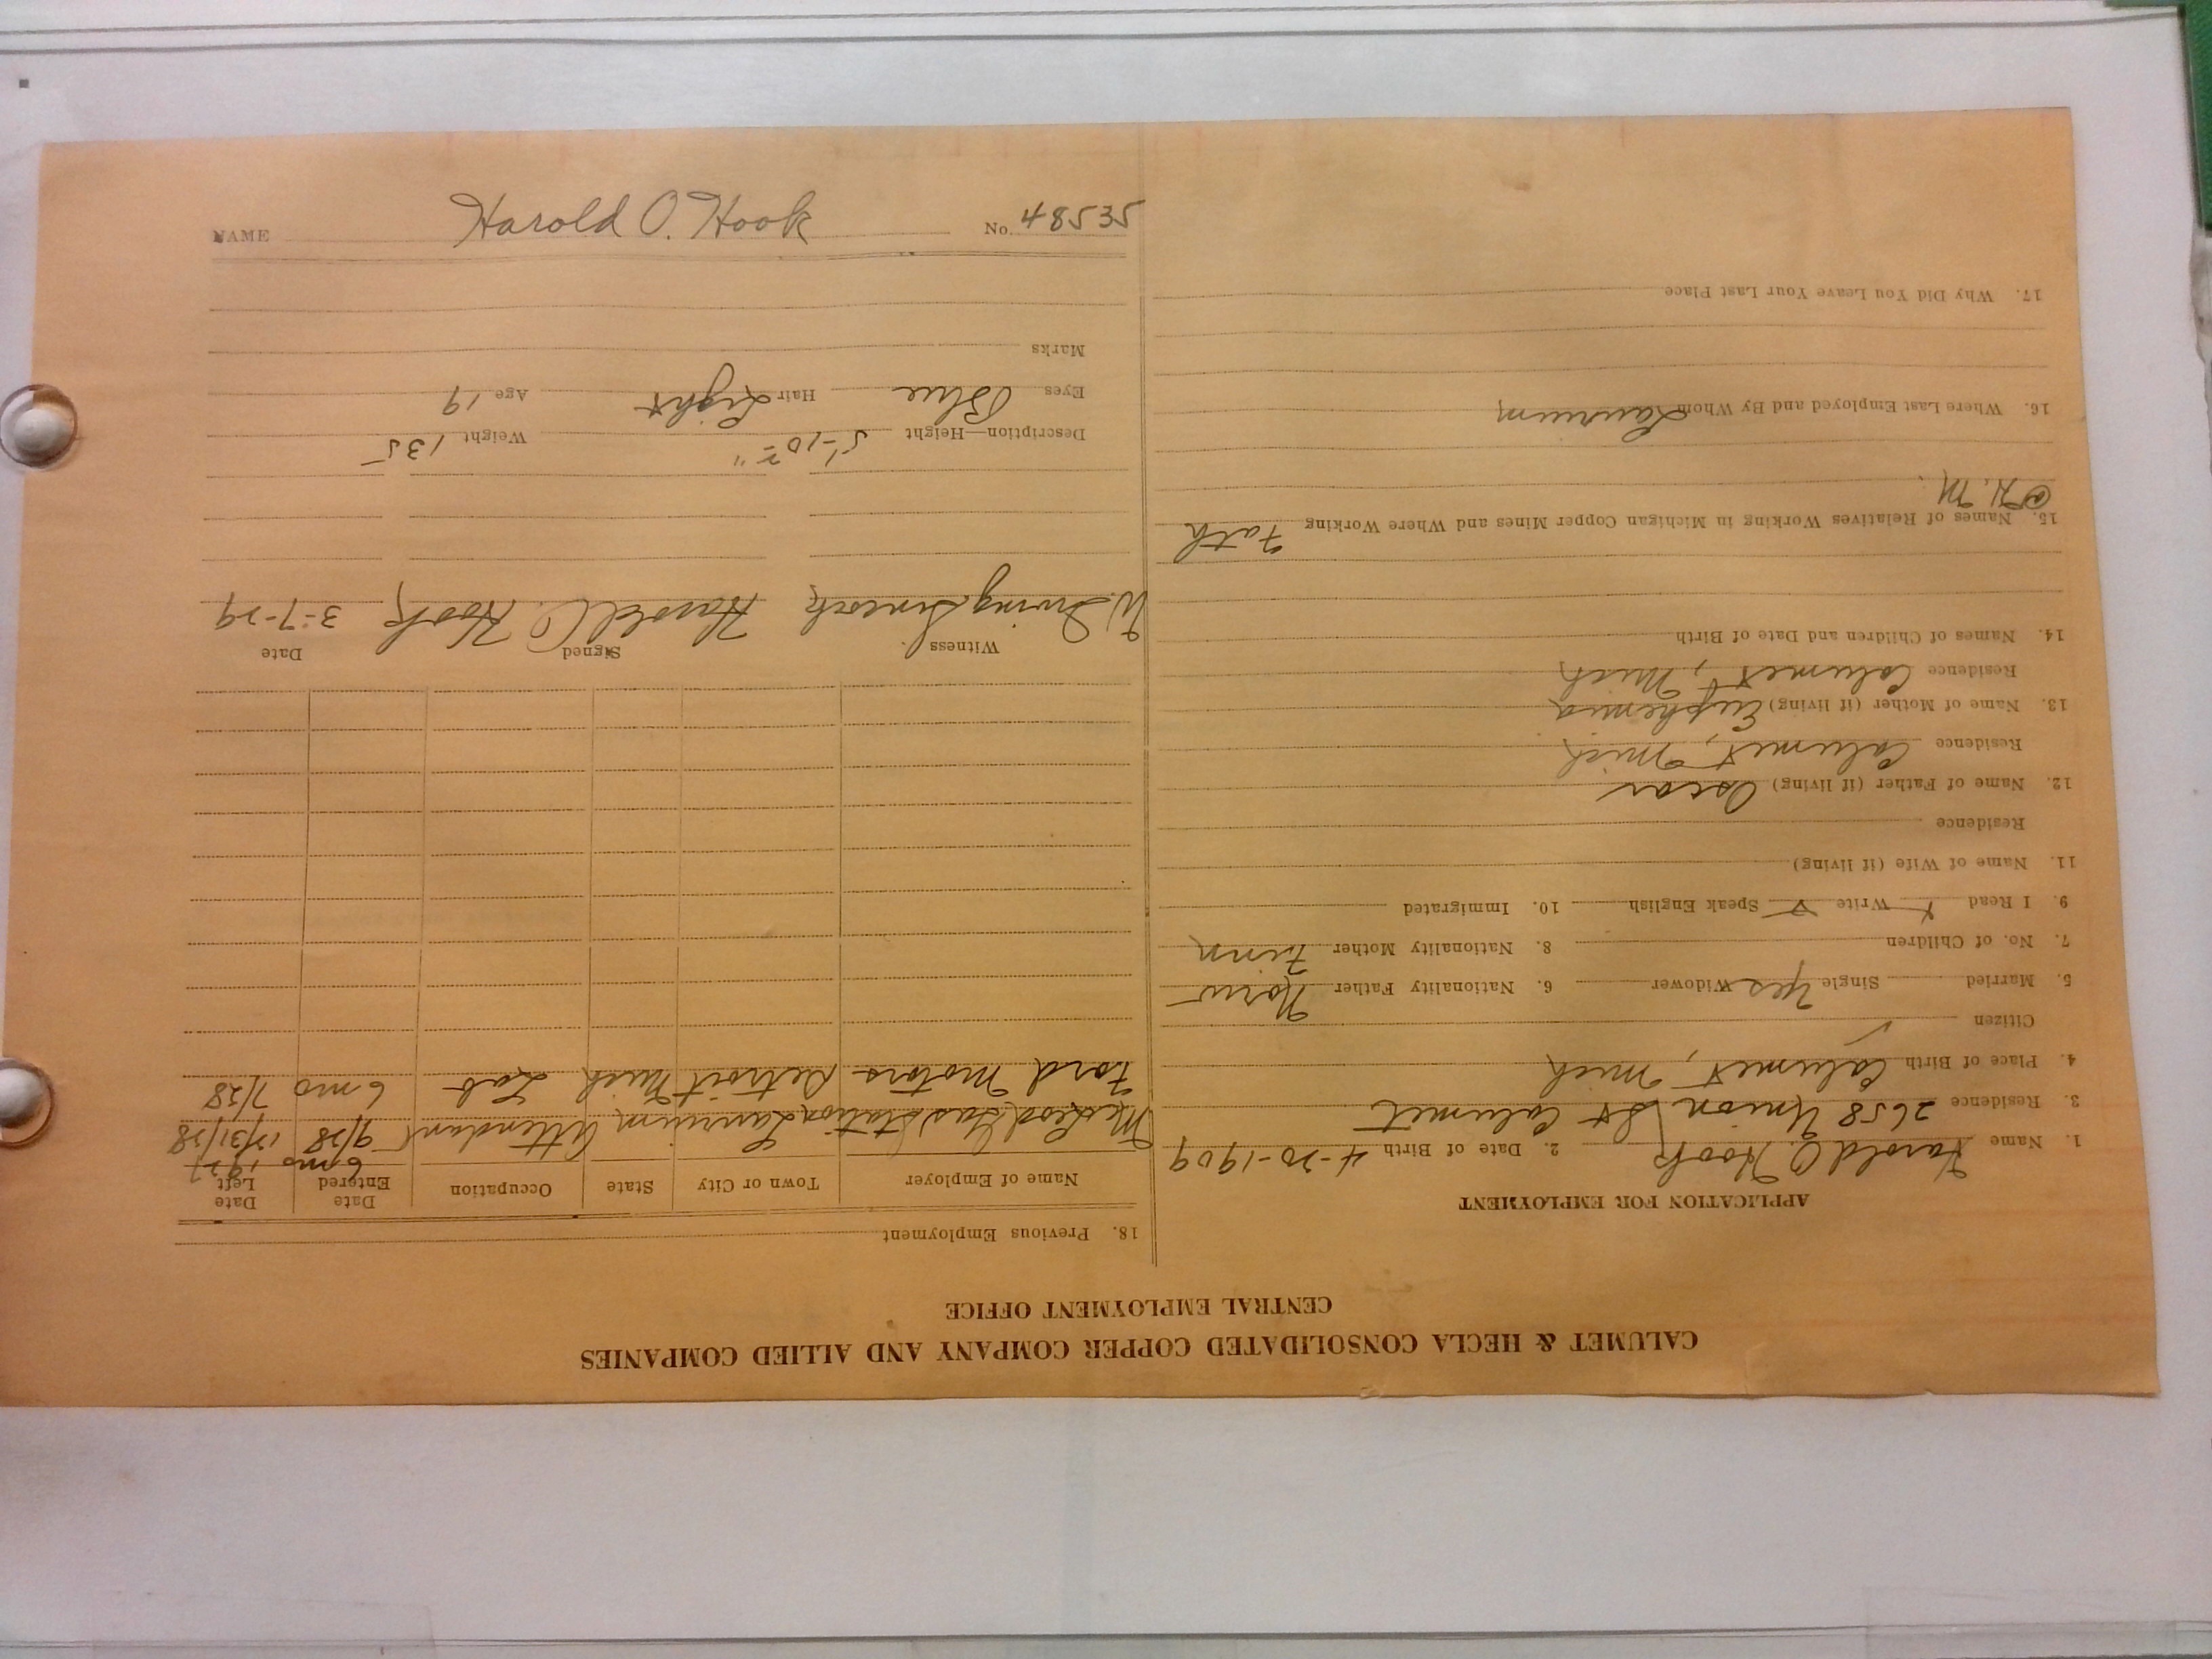 CALUMET & HECLA CONSOLIDATED COPPER COMPANY AND ALLIED COMPANIES
CENTRAL EMPLOYMENT OFFICE
APPLICATION FOR EMPLOYMENT
1. Name Harold O. Hook 2. Date of Birth 4-20-1909
3. Residence 2658 Union St Calumet
4. Place of Birth Calumet, Mich
Citizen
5. Married Single Yes Widower 6. Nationality Father Norw
7. No. of Children 8. Nationality Mother Finn
9. I Read Write Speak English 10. Immigrated
11. Name of Wife (if living)
Residence
12. Name of Father (if living) Oscar
Residence Calumet, Mich
13. Name of Mother (if living) Euphemia
Residence Calumet, Mich
14. Names of Children and Date of Birth
15. Names of Relatives Working in Michigan Copper Mines and Where Working Fath
16. Where Last Employed and By Whom Laurium
17. Why Did You Leave Your Last Place
18. Previous Employment
Name of Employer Town or City State Occupation Date Entered Date Left
6 mo 1927
McLeod Gas Station Laurium Attendant 9/28 12/31/28
Ford Motors Detroit Mich Lab 6 mo 7/28
Witness Signed Date
W. Irving Harold O. Hook 3-7-29
Description—Height 5'-10 Weight 135
Eyes Blue Hair Light Age 19
Marks
NAME Harold O. Hook No. 48535